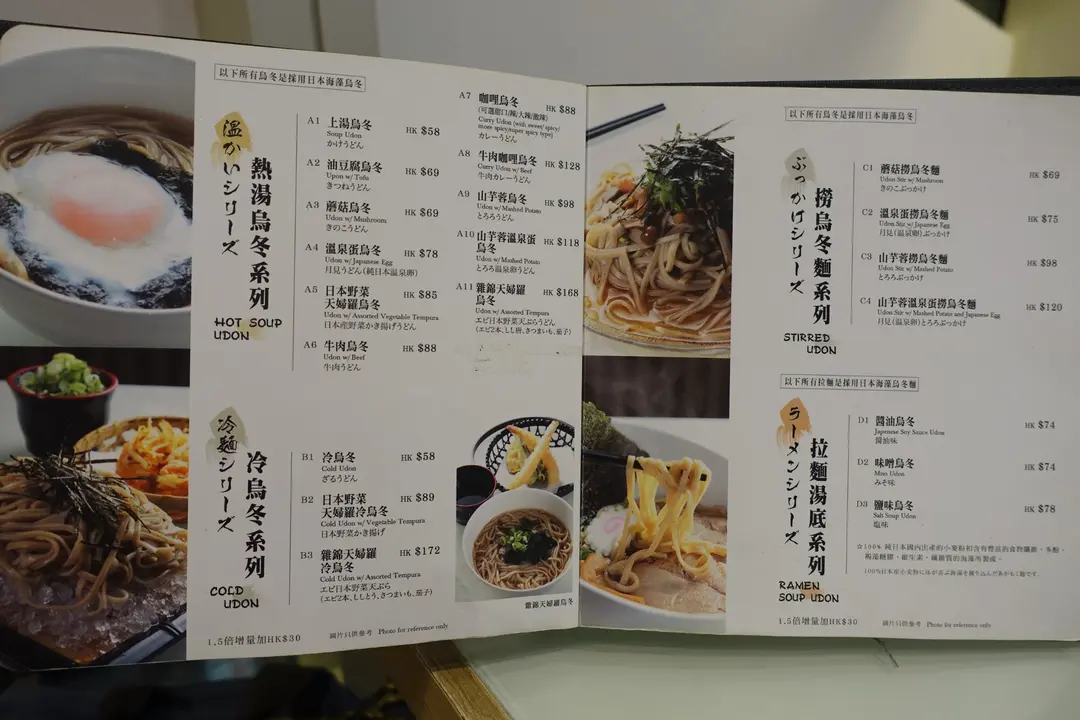 以下所有烏冬是採用日本海藻烏冬
温かいシリーズ
熱湯烏冬系列
HOT SOUP
UDON
A1 上湯烏冬 HK $58
Soup Udon
かけうどん
A2 油豆腐烏冬 HK $69
Upon w/ Tofu
きつねうどん
A3 蘑菇烏冬 HK $69
Udon w/ Mushroom
きのこうどん
A4 温泉蛋烏冬 HK $78
Udon w/ Japanese Egg
月見うどん(純日本温泉卵)
A5 日本野菜
天婦羅烏冬 HK $85
Udon w/ Assorted Vegetable Tempura
日本産野菜かき揚げうどん
A6 牛肉烏冬 HK $88
Udon w/ Beef
牛肉うどん
A7 咖哩烏冬 HK $88
(可選甜口/辣/大辣/激辣)
Curry Udon (with sweet/ spicy/
more spicy/super spicy type)
カレーうどん
A8 牛肉咖哩烏冬 HK $128
Curry Udon w/ Beef
牛肉カレーうどん
A9 山芋蓉烏冬 HK $98
Udon w/ Mashed Potato
とろろうどん
A10 山芋蓉温泉蛋
烏冬 HK $118
Udon w/ Mashed Potato
とろろ温泉卵うどん
A11 雜錦天婦羅
烏冬 HK $168
Udon w/ Assorted Tempura
エビ日本野菜天ぷらうどん
(エビ2本、しし唐、さつまいも、茄子)
冷麺シリーズ
冷烏冬系列
COLD
UDON
B1 冷烏冬 HK $58
Cold Udon
ざるうどん
B2 日本野菜
天婦羅冷烏冬 HK $89
Cold Udon w/ Vegetable Tempura
日本野菜かき揚げ
B3 雜錦天婦羅
冷烏冬 HK $172
Cold Udon w/ Assorted Tempura
エビ日本野菜天ぷら
(エビ2本、ししとう、さつまいも、茄子)
雜錦天婦羅烏冬
1.5倍增量加HK$30
圖片只供參考 Photo for reference only
以下所有烏冬是採用日本海藻烏冬
ぶっかけシリーズ
撈烏冬麵系列
STIRRED
UDON
C1 蘑菇撈烏冬麵 HK $69
Udon Stir w/ Mushroom
きのこぶっかけ
C2 温泉蛋撈烏冬麵 HK $75
Udon Stir w/ Japanese Egg
月見(温泉卵)ぶっかけ
C3 山芋蓉撈烏冬麵 HK $98
Udon Stir w/ Mashed Potato
とろろぶっかけ
C4 山芋蓉温泉蛋撈烏冬麵 HK $120
Udon Stir w/ Mashed Potato and Japanese Egg
月見(温泉卵)とろろぶっかけ
以下所有拉麵是採用日本海藻烏冬麵
ラーメンシリーズ
拉麵湯底系列
RAMEN
SOUP UDON
D1 醬油烏冬 HK $74
Japanese Soy Sauce Udon
醤油味
D2 味噌烏冬 HK $74
Miso Udon
みそ味
D3 鹽味烏冬 HK $78
Salt Soup Udon
塩味
☆100% 純日本國内出產的小麥粉和含有豐富的食物纖維、多酚、
褐藻糖膠、維生素、礦物質的海藻所製成。
1.5倍增量加HK$30
圖片只供參考 Photo for reference only